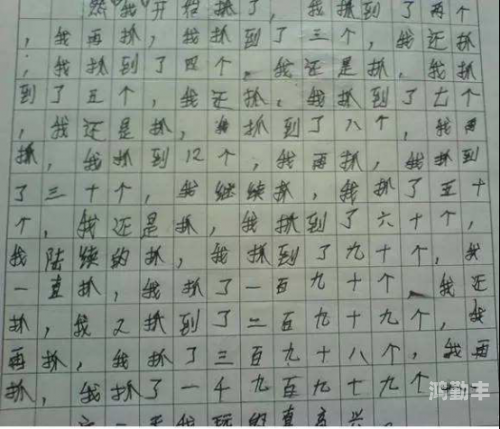 然我开始抓了，我抓到了两个
，我再抓，我抓到了三个，我还抓
，我抓到了四个，我还是抓，我抓
到了五个，我还抓，我抓到了七个
，我还是抓，我抓到了八个，我再
抓，我抓到12个，我再抓，我抓到
了三十个，我继续抓，我抓了五十
个，我还是抓，我抓到了六十个，
我陆续的抓，我抓到了九十个，我
一直抓，我抓了一百九十个，我还
抓，我又抓到了二百九十九个，我
再抓，我抓了三百九十八个，我再
抓，我抓了一千九百九十九个
这一天我玩的真高兴。
鸿勤丰